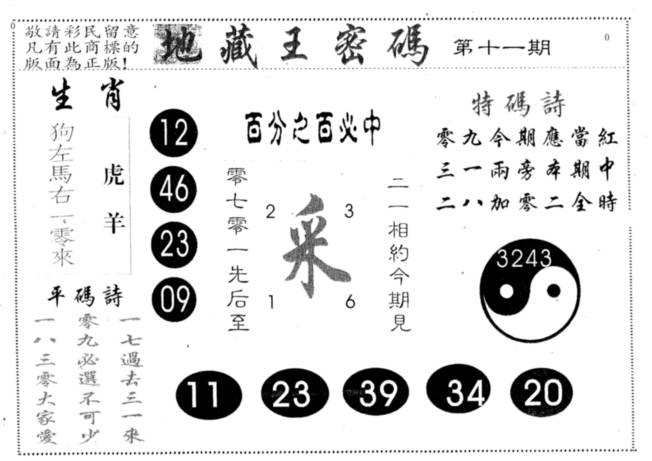 敬請彩民留意
凡有此商標的
版面為正版!
地藏王密碼
第十一期
0
0
生肖
狗左馬右一、零來
虎羊
12
46
23
09
百分之百必中
零七零一先后至
2 3
采
1 6
二一相約今期見
特碼詩
零九今期應當紅
三一兩旁本期中
二八加零二全時
3243
平碼詩
一七過去三一來
零九必選不可少
一八三零大家愛
11 23 39 34 20